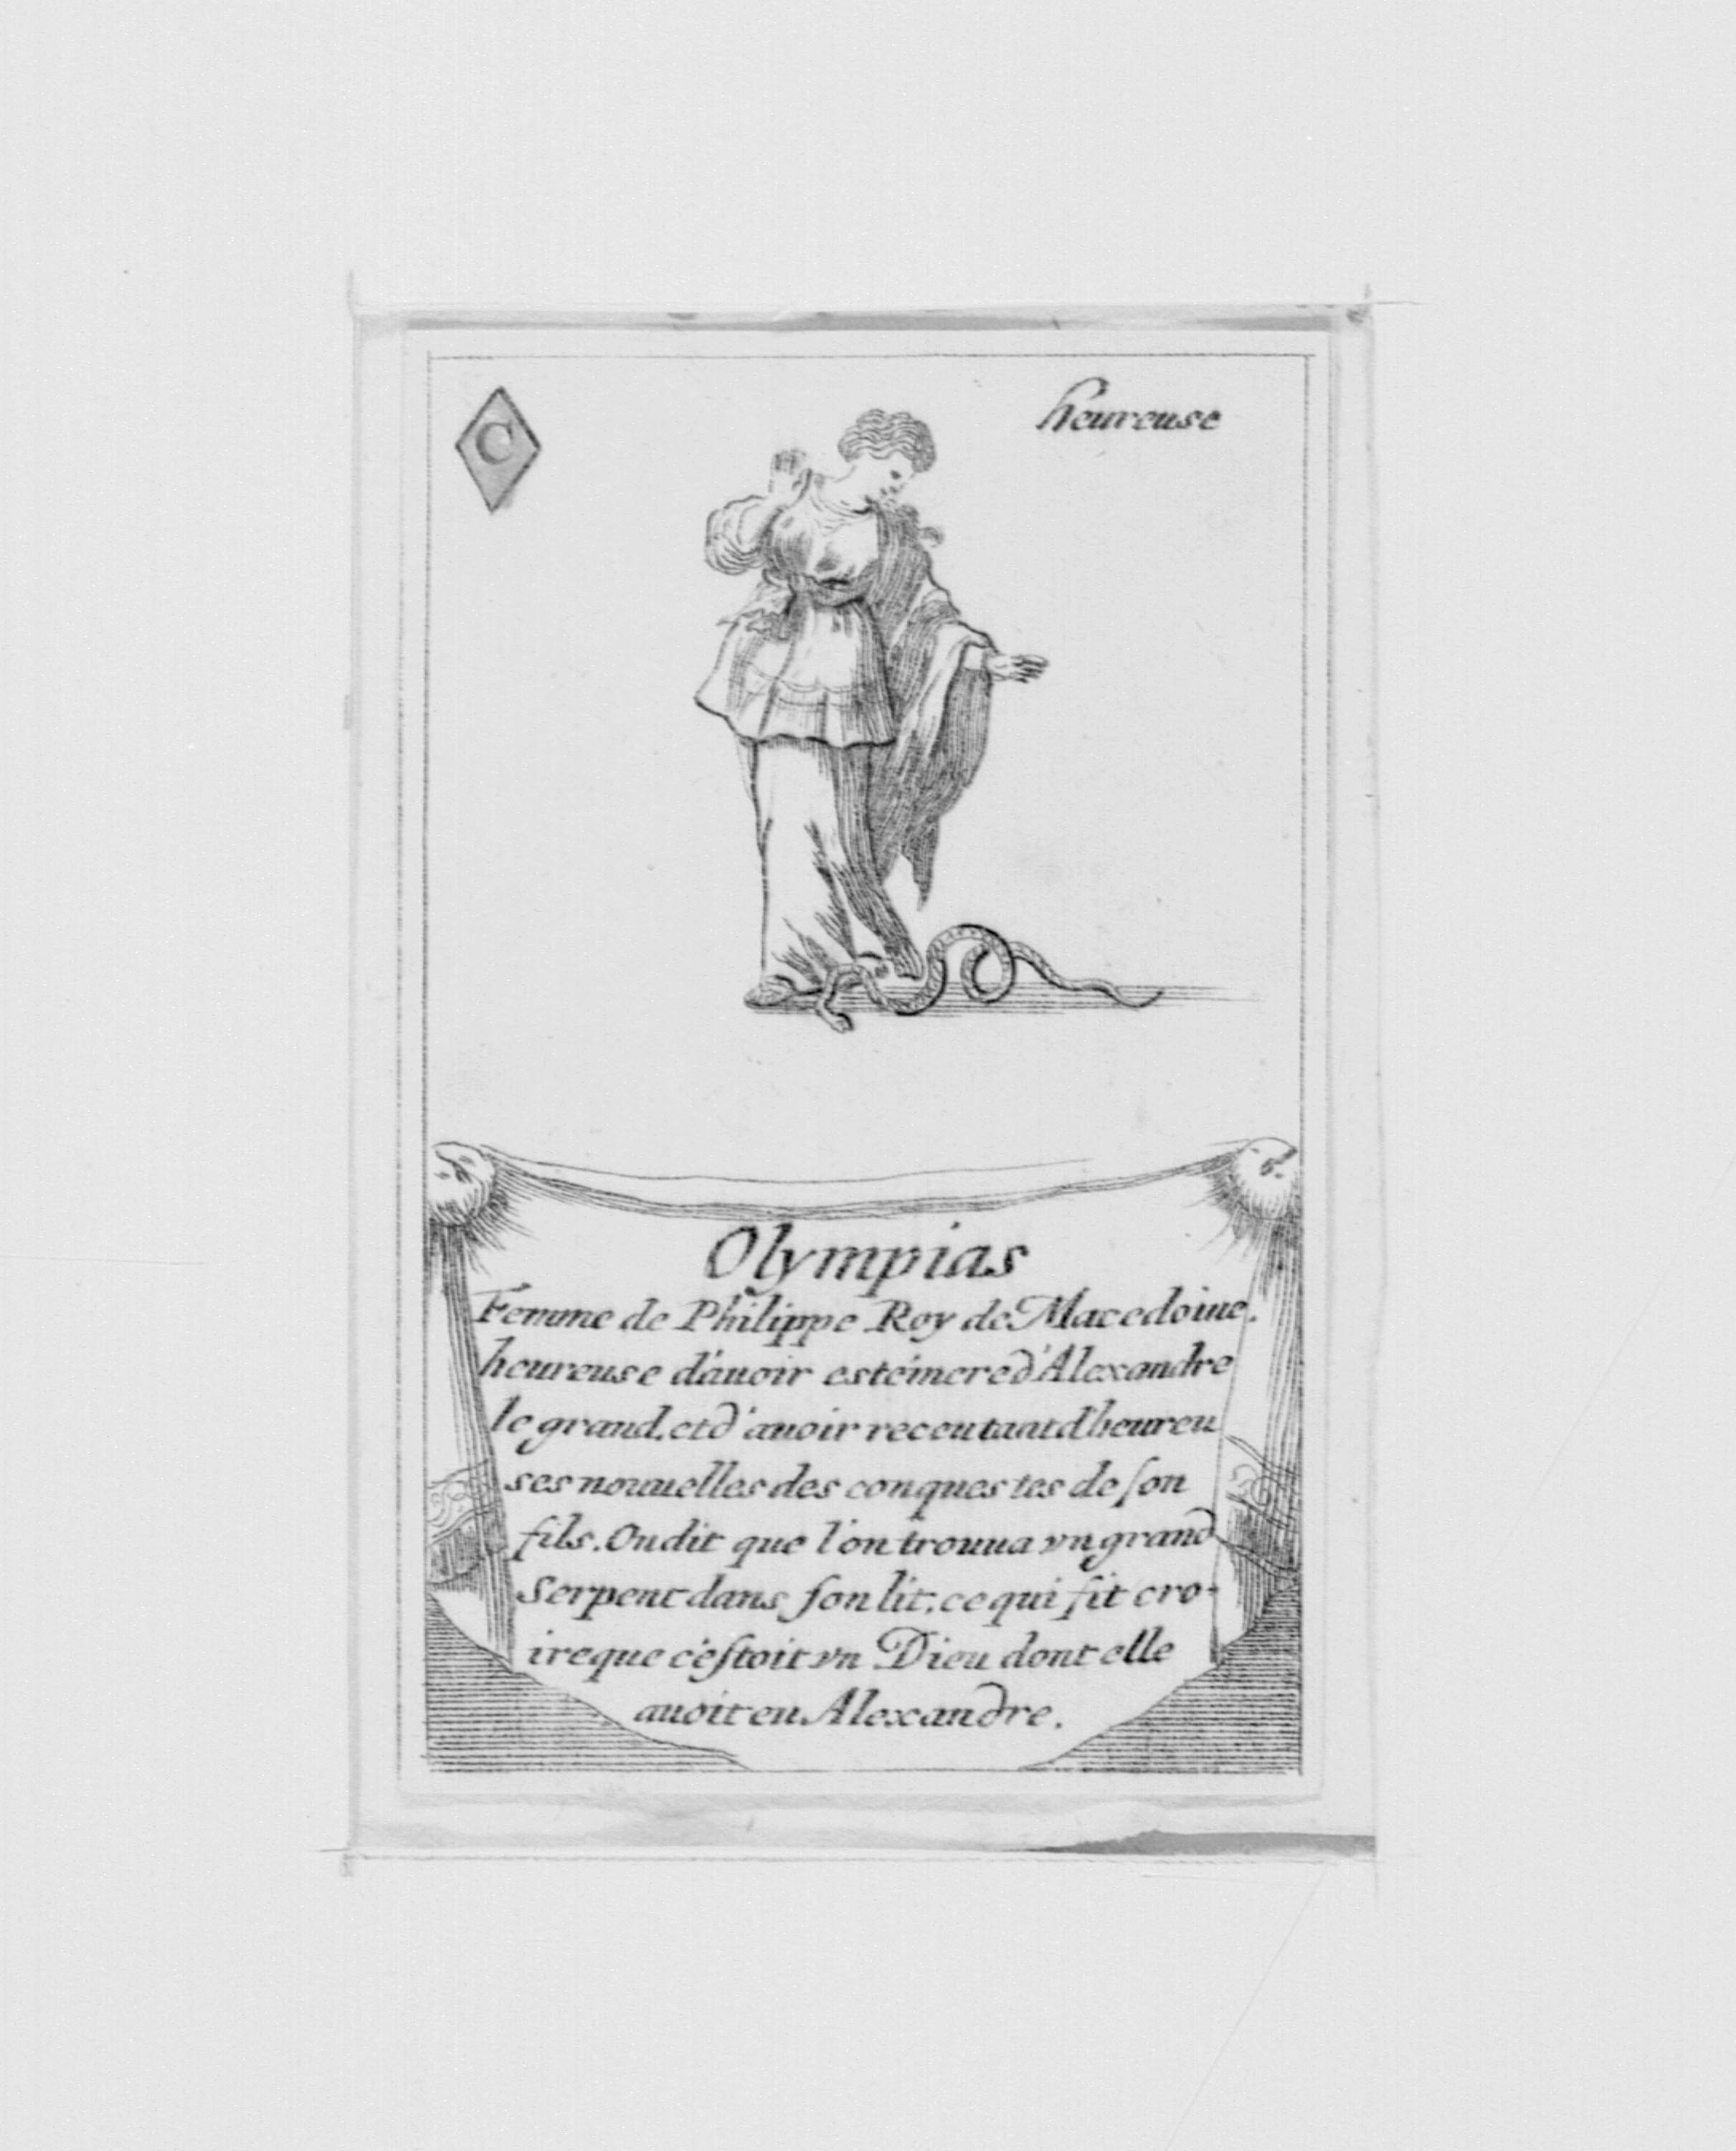 C
heureuse
Olympias
Femme de Philippe Roy de Macedoine.
heureuse d'auoir esté mere d'Alexandre
le grand, et d'auoir receu tant d'heureu
ses nouuelles des conquestes de ſon
fils. On dit que l'on trouua vn grand
Serpent dans ſon lit, ce qui fit cro-
ire que c'eſtoit vn Dieu dont elle
auoit eu Alexandre.